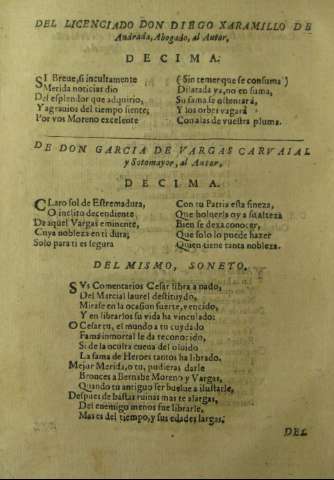 DEL LICENCIADO DON DIEGO XARAMILLO DE
Andrada, Abogado, al Autor,
DECIMA.
SI Breue, si incultamente
Merida noticias dio
Del esplendor que adquirio,
Y agrauios del tiempo siente;
Por vos Moreno excelente
(Sin temer que se consuma)
Dilatada ya, no en suma,
Su fama se ostentará,
Y los orbes vagará
Con alas de vuestra pluma.
DE DON GARCIA DE VARGAS CARVAIAL
y Sotomayor, al Autor,
DECIMA.
CLaro sol de Estremadura,
O inclito decendiente
De aquel Vargas eminente,
Cuya nobleza en ti dura;
Solo para ti es segura
Con tu Patria esta fineza,
Que boluerla oy a su alteza
Bien se dexa conocer,
Que solo lo puede hazer
Quien tiene tanta nobleza.
DEL MISMO, SONETO.
SVs Comentarios Cesar libra a nado,
Del Marcial laurel destituydo,
Mirase en la ocasion fuerte, vencido,
Y en librarlos su vida ha vinculado:
O Cesar tu, el mundo a tu cuydado
Fama inmortal le da reconocido,
Si de la oculta cueua del oluido
La fama de Heroes tantos ha librado.
Mejor Merida, o tu, pudieras darle
Bronces a Bernabe Moreno y Vargas,
Quando tu antiguo ser buelue a ilustarle,
Despues de bastas ruinas mas te alargas,
Del enemigo menos fue librarle,
Mas es del tiempo, y sus edades largas.
DEL